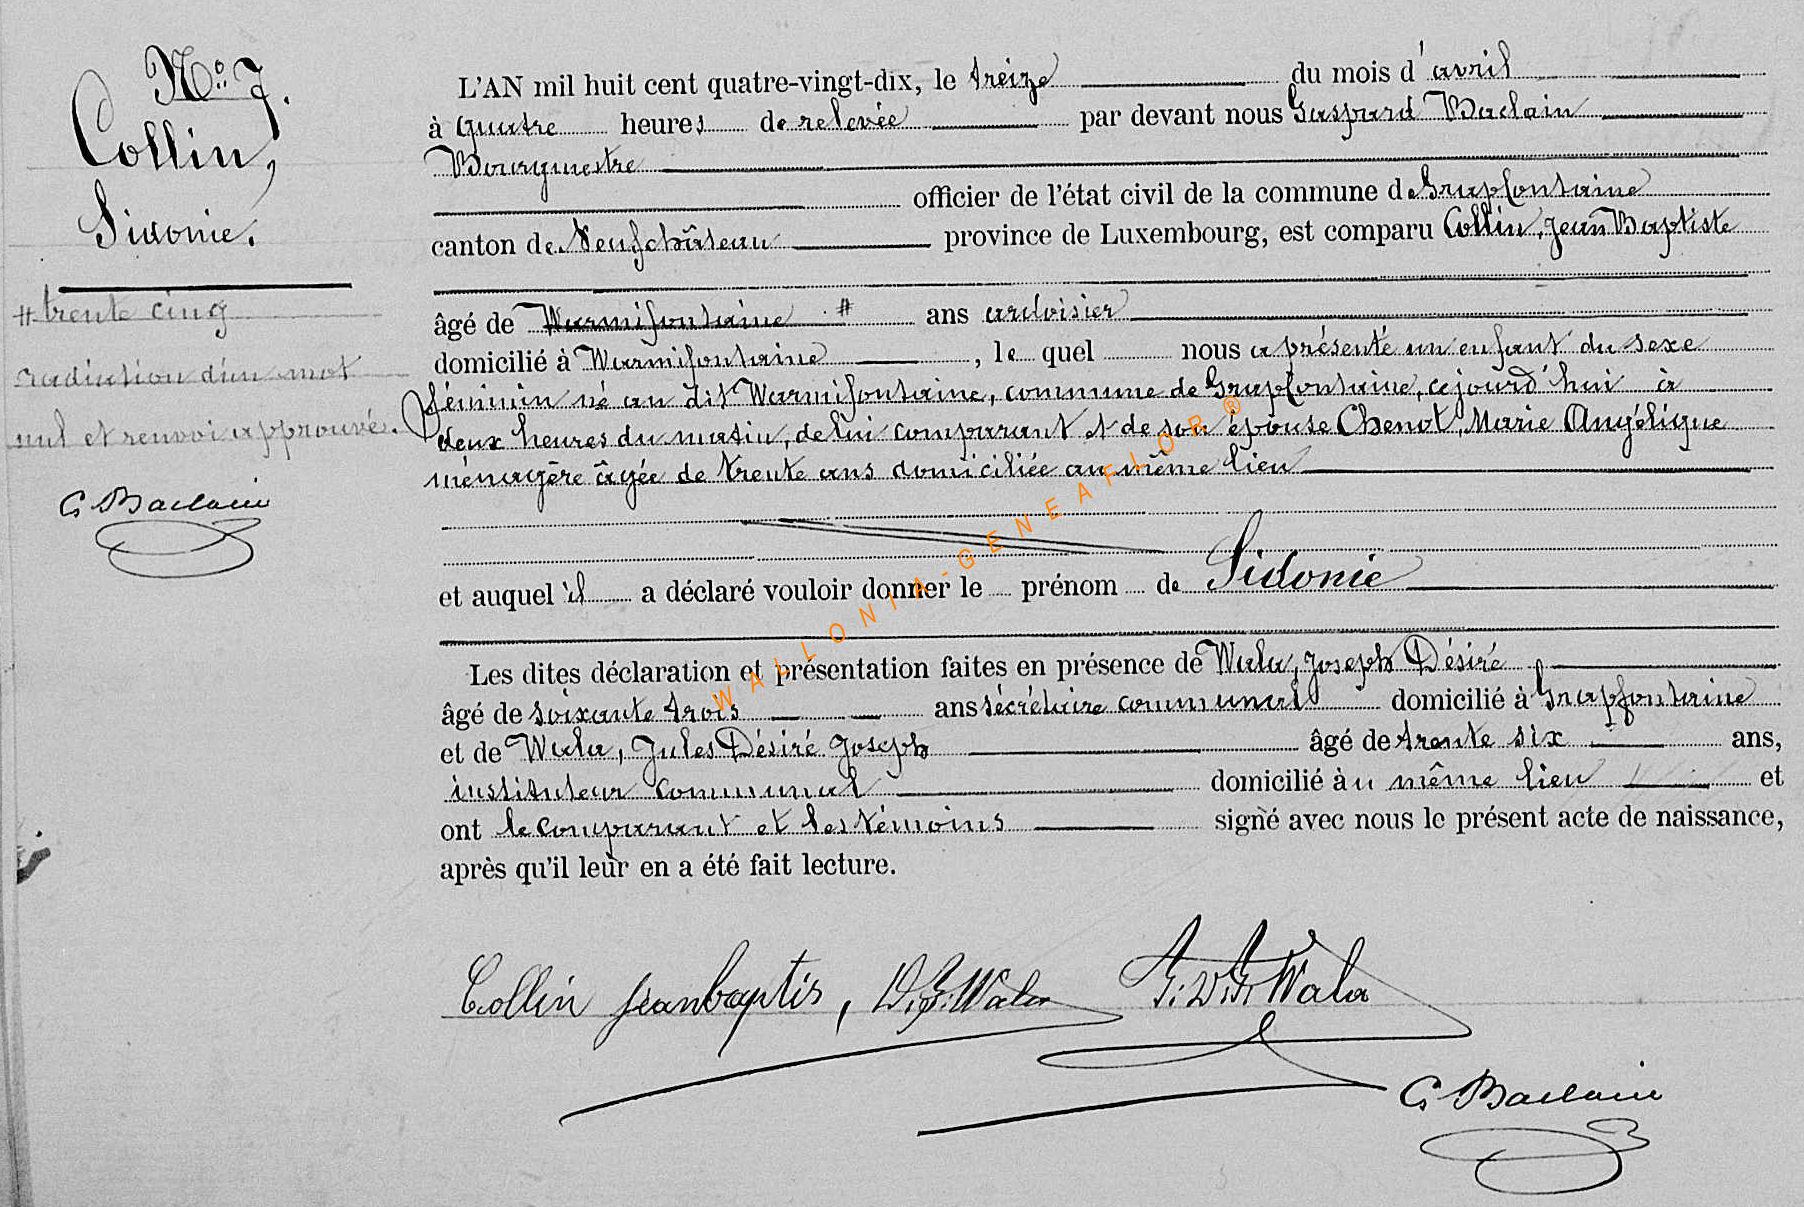 N.o 7.
Collin,
Sidonie.
# trente cinq
radiation d'un mot
nul et renvoi approuvé.
G Baclain
L'AN mil huit cent quatre-vingt-dix, le treize du mois d'avril
à quatre heures de relevée par devant nous Gaspard Baclain
Bourgmestre
officier de l'état civil de la commune de Grapfontaine
canton de Neufchâteau province de Luxembourg, est comparu Collin, Jean Baptiste
âgé de Warmifontaine # ans ardoisier
domicilié à Warmifontaine, lequel nous a présenté un enfant du sexe
féminin né au dit Warmifontaine, commune de Grapfontaine, cejourd'hui à
deux heures du matin, de lui comparant et de son épouse Chenot, Marie Angélique
ménagère âgée de trente ans domiciliée au même lieu
et auquel il a déclaré vouloir donner le prénom de Sidonie
Les dites déclaration et présentation faites en présence de Wala, Joseph Désiré
âgé de soixante trois ans sécrétaire communal domicilié à Grapfontaine
et de Wala, Jules Désiré Joseph âgé de trente six ans,
instituteur communal domicilié àu même lieu et
ont le comparant et les témoins signé avec nous le présent acte de naissance,
après qu'il leur en a été fait lecture.
Collin jeanbaptis, D.J. Wala J.D.J. Wala
G Baclain
WALLONIA-GENEAFLOR®